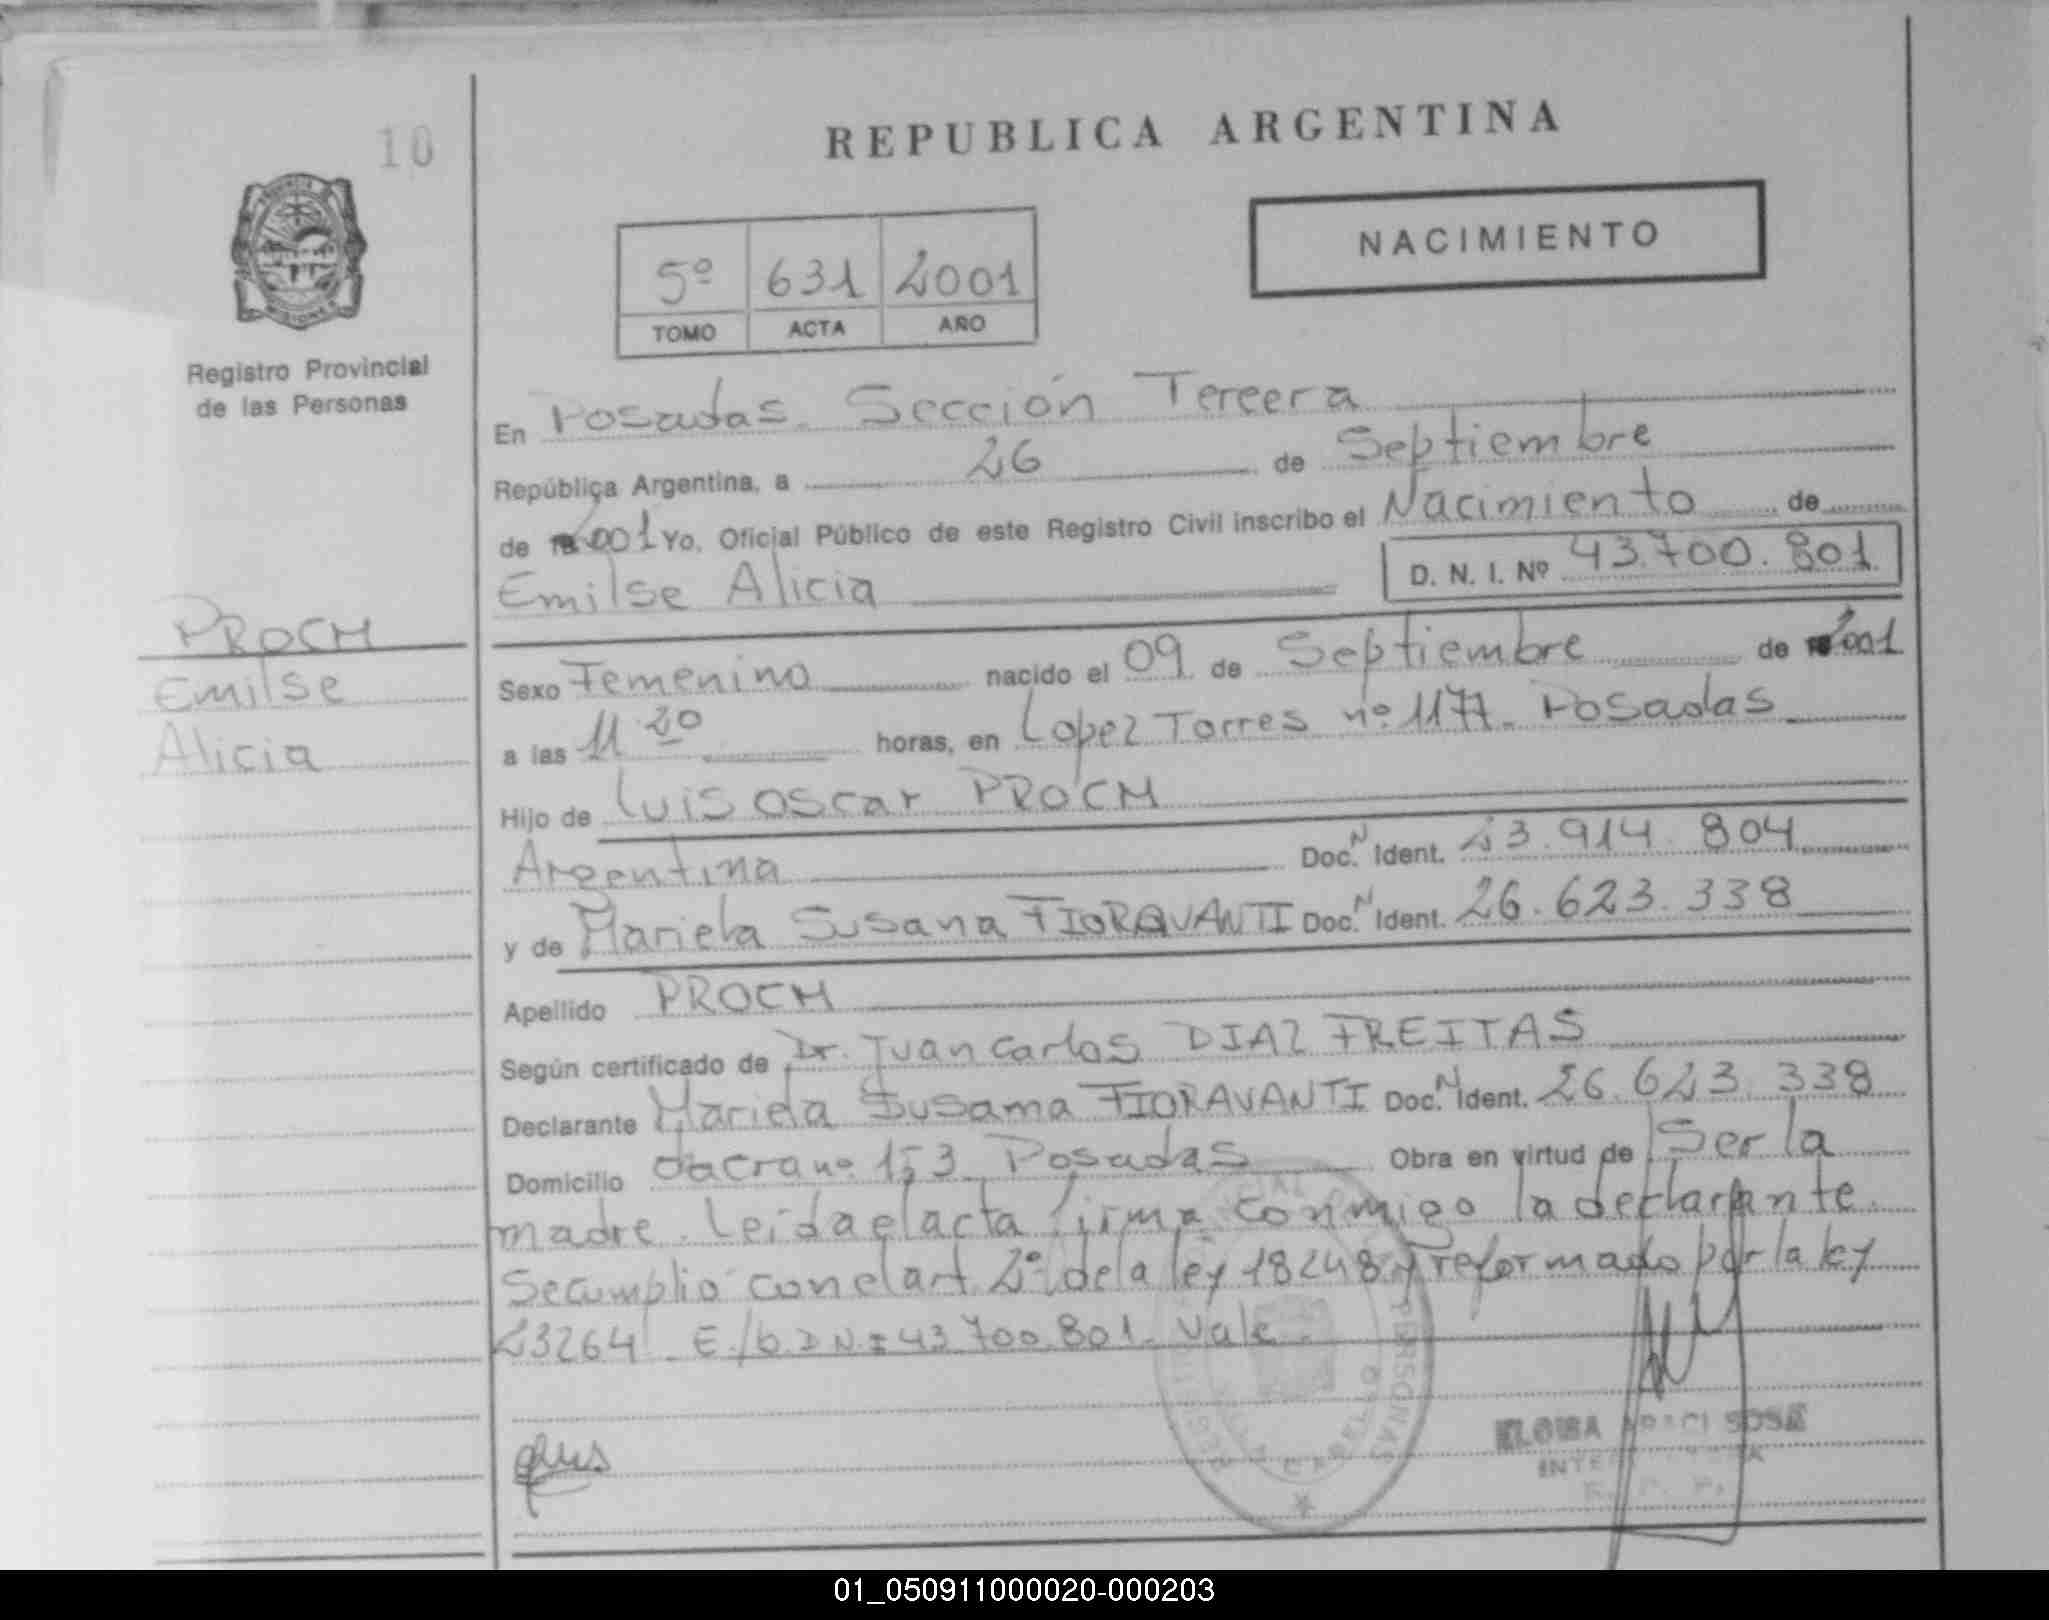 10
REPUBLICA ARGENTINA
NACIMIENTO
5º 631 2001
TOMO ACTA AÑO
Registro Provincial
de las Personas
En Posadas. Sección Tercera
República Argentina, a 26 de Septiembre
de 2001 Yo, Oficial Público de este Registro Civil inscribo el Nacimiento de
Emilse Alicia D. N. I. Nº 43.700.801
PROCH
Emilse
Alicia
Sexo Femenino nacido el 09 de Septiembre de 2001
a las 11 20 horas, en Lopez Torres nº 1177. Posadas
Hijo de Luis Oscar PROCH
Argentina Doc. N Ident. 23.914.804
y de Mariela Susana FIORAVANTI Doc. N Ident. 26.623.338
Apellido PROCH
Según certificado de Dr. Juan Carlos DIAZ FREITAS
Declarante Mariela Susana FIORAVANTI Doc. N Ident. 26.623.338
Domicilio Chacra nº 153 Posadas Obra en virtud de Ser la
madre. Leida el acta firma conmigo la declarante.
Se cumplio con el art. 2º de la ley 18248 y reformado por la ley
23264. E/b. D N.I 43.700.801. Vale.
PERSONAS
ELOISA SOSA
01_050911000020-000203